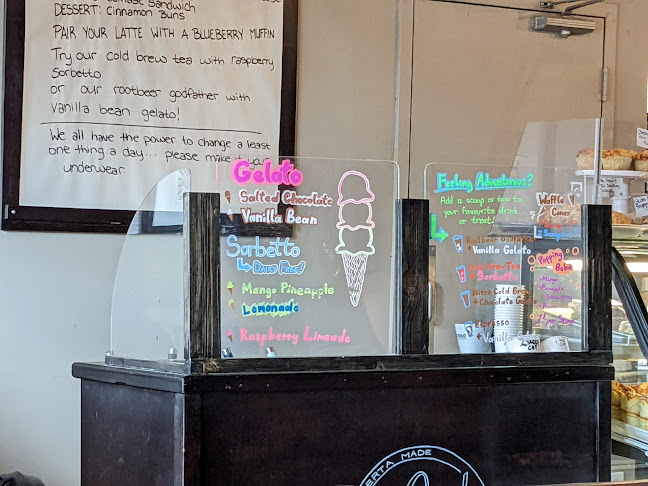 Sandwich
DESSERT: Cinnamon Buns
PAIR YOUR LATTE WITH A BLUEBERRY MUFFIN
Try our cold brew tea with raspberry
Sorbetto
or our rootbeer godfather with
vanilla bean gelato!
We all have the power to change a least
one thing a day... please make it your
underwear
Gelato
Salted Chocolate
Vanilla Bean
Sorbetto
Dairy Free!
Mango Pineapple
Lemonade
Raspberry Limeade
Feeling Adventurous?
Add a scoop or two to
your favourite drink
or treat!
Rootbeer Godfather
+ Vanilla Gelato
Tea
+ Sorbetto
Nitro Cold Brew
+ Chocolate
Espresso
+ Vanilla
Waffle
Cones
Popping
Boba
Mango
Pineapple
Strawberry
ERTA MADE